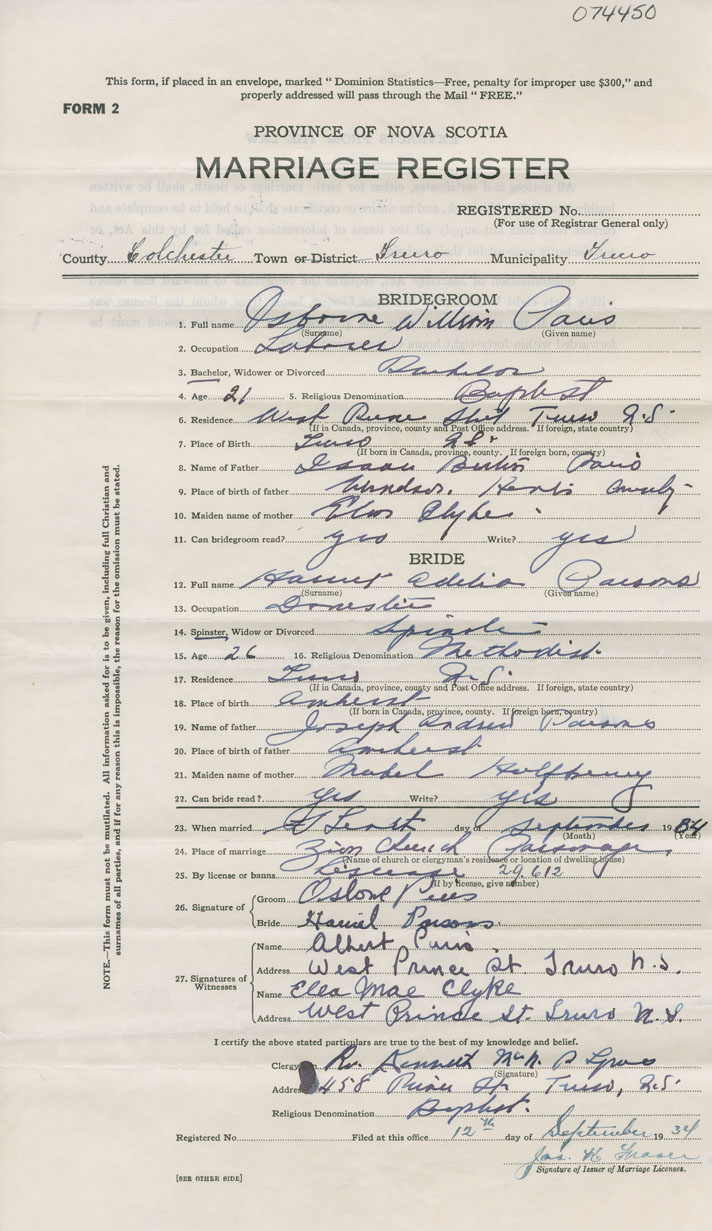 074450
This form, if placed in an envelope, marked “ Dominion Statistics—Free, penalty for improper use $300,” and
properly addressed will pass through the Mail “ FREE.”
FORM 2
PROVINCE OF NOVA SCOTIA
MARRIAGE REGISTER
REGISTERED No.
(For use of Registrar General only)
County Colchester Town or District Truro Municipality Truro
BRIDEGROOM
1. Full name Osborne William Paris
(Surname) (Given name)
2. Occupation Laborer
3. Bachelor, Widower or Divorced Bachelor
4. Age 21 5. Religious Denomination Baptist
6. Residence West Prince Street Truro N.S.
(If in Canada, province, county and Post Office address. If foreign, state country)
7. Place of Birth Truro N.S.
(If born in Canada, province, county. If foreign born, country)
8. Name of Father Isaac Paris
9. Place of birth of father Windsor, Hants County
10. Maiden name of mother Clyke
11. Can bridegroom read? yes Write? yes
BRIDE
12. Full name Harriet Adelia Parsons
(Surname) (Given name)
13. Occupation Domestic
14. Spinster, Widow or Divorced Spinster
15. Age 26 16. Religious Denomination Methodist
17. Residence Truro N.S.
(If in Canada, province, county and Post Office address. If foreign, state country)
18. Place of birth Amherst
(If born in Canada, province, county. If foreign born, country)
19. Name of father Joseph Andrew Parsons
20. Place of birth of father Amherst
21. Maiden name of mother Mabel Halfpenny
22. Can bride read? yes Write? yes
23. When married day of September 1934
(Month) (Year)
24. Place of marriage Zion Church Parsonage
(Name of church or clergyman's residence or location of dwelling house)
25. By license or banns License 29,612
(If by license, give number)
26. Signature of
Groom
Bride Harriet Parsons
27. Signatures of Witnesses
Name Albert Paris
Address West Prince St. Truro N.S.
Name Elea Mae Clyke
Address West Prince St. Truro N.S.
I certify the above stated particulars are true to the best of my knowledge and belief.
Clergy Rev. Kenneth
(Signature)
Address 458 Prince St. Truro, N.S.
Religious Denomination Baptist.
Registered No. Filed at this office 12th day of September 1934
Jas. H. Fraser
Signature of Issuer of Marriage Licenses.
[SEE OTHER SIDE]
NOTE.—This form must not be mutilated. All information asked for is to be given, including full Christian and
surnames of all parties, and if for any reason this is impossible, the reason for the omission must be stated.